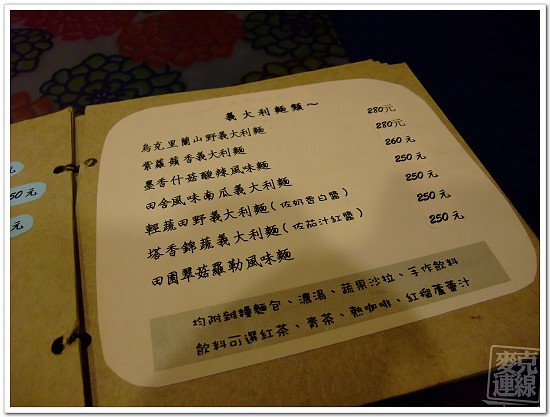 義大利麵類～
烏克里蘭山野義大利麵 280元
紫蘿蘋香義大利麵 280元
墨香什菇酸辣風味麵 260元
田舍風味南瓜義大利麵 250元
輕蔬田野義大利麵(佐奶香白醬) 250元
塔香錦蔬義大利麵(佐茄汁紅醬) 250元
田園翠菇羅勒風味麵 250元
均附雜糧麵包、濃湯、蔬果沙拉、手作飲料
飲料可選紅茶、青茶、熱咖啡、紅榴蘆薈汁
元
50元
元
麥克
連線